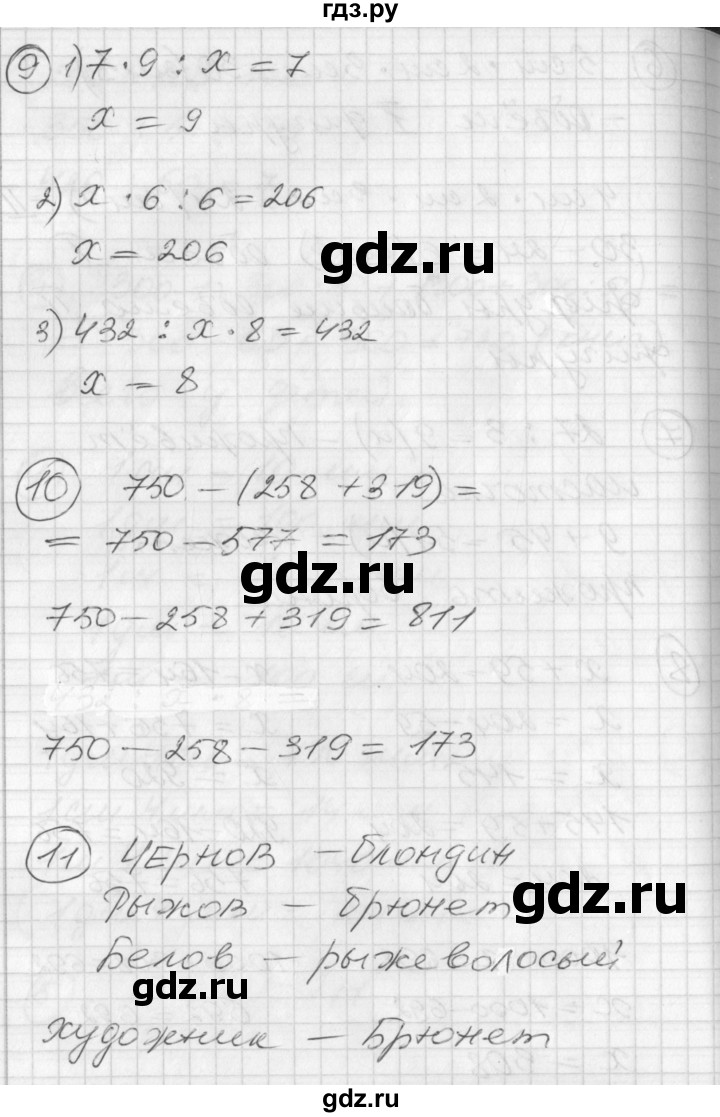 гдз.ру
9 1) 7 · 9 : x = 7
x = 9
2) x · 6 : 6 = 206
x = 206
gdz.ru
3) 432 : x · 8 = 432
x = 8
10 750 - (258 + 319) =
= 750 - 577 = 173
gdz.ru
750 - 258 + 319 = 811
750 - 258 - 319 = 173
11 ЧЕРНОВ - блондин
gdz.ru
Рыжов - брюнет
Белов - рыжеволосый
gdz.ru
художник - Брюнет
gdz.ru